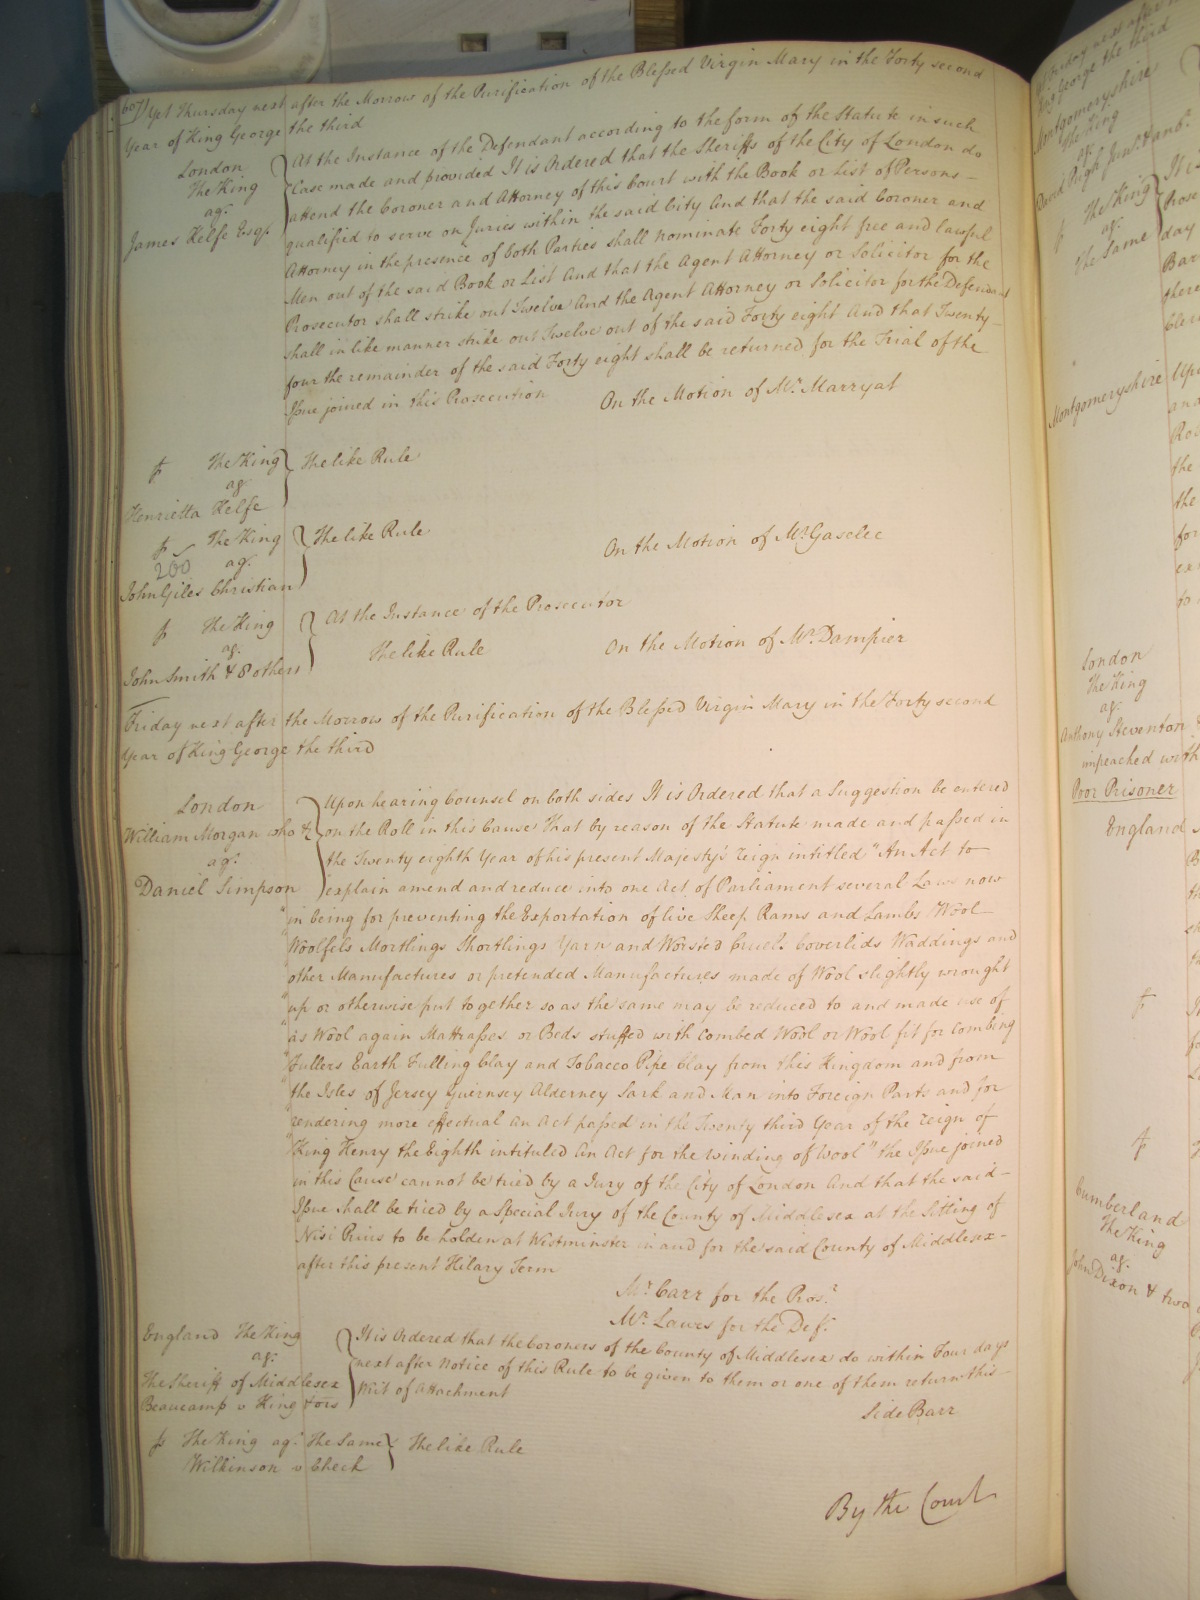 Yet Thursday next after the Morrow of the Purification of the Blessed Virgin Mary in the Forty second
Year of King George the third
London
The King
agt
James Kelfe Esqr.
At the Instance of the Defendant according to the form of the Statute in such
Case made and provided It is Ordered that the Sheriffs of the City of London do
attend the Coroner and Attorney of this Court with the Book or List of Persons
qualified to serve on Juries within the said City And that the said Coroner and
Attorney in the presence of both Parties shall nominate Forty eight free and lawful
Men out of the said Book or List And that the Agent Attorney or Solicitor for the
Prosecutor shall strike out Twelve And the Agent Attorney or Solicitor for the Defendant
shall in like manner strike out Twelve out of the said Forty eight And that Twenty
four the remainder of the said Forty eight shall be returned for the Trial of the
Issue joined in this Prosecution On the Motion of Mr. Marryat
The King
agt
Henrietta Kelfe
The like Rule
The King
200 agt.
John Giles Christian
The like Rule On the Motion of Mr Gaselee
The King
agt.
John Smith & 8 others
At the Instance of the Prosecutor
The like Rule On the Motion of Mr. Dampier
Friday next after the Morrow of the Purification of the Blessed Virgin Mary in the Forty second
Year of King George the third
London
William Morgan who &c
agt.
Daniel Simpson
Upon hearing Counsel on both sides It is Ordered that a Suggestion be entered
on the Roll in this Cause That by reason of the Statute made and passed in
the Twenty eighth Year of his present Majesty's reign intitled "An Act to
explain amend and reduce into one Act of Parliament several Laws now
"in being for preventing the Exportation of live Sheep Rams and Lambs Wool
"Woolfels Mortlings Shortlings Yarn and Worsted Cruels Coverlids Waddings and
"other Manufactures or pretended Manufactures made of Wool slightly wrought
"up or otherwise put together so as the same may be reduced to and made use of
"as Wool again Mattrasses or Beds stuffed with Combed Wool or Wool fit for Combing
"Fullers Earth Fulling Clay and Tobacco Pipe Clay from this Kingdom and from
"the Isles of Jersey Guernsey Alderney Sark and Man into Foreign Parts and for
"rendering more effectual an Act passed in the Twenty third Year of the reign of
"King Henry the Eighth intituled An Act for the winding of Wool" the Issue joined
in this Cause cannot be tried by a Jury of the City of London And that the said
Issue shall be tried by a Special Jury of the County of Middlesex at the Sitting of
Nisi Prius to be holden at Westminster in and for the said County of Middlesex
after this present Hilary Term
Mr. Carr for the Pros.r
Mr. Lawes for the Def.t
England The King
agt.
The Sheriff of Middlesex
Beaucamp v King & ors
It is Ordered that the Coroners of the County of Middlesex do within Four days
next after Notice of this Rule to be given to them or one of them return this
Writ of Attachment
Side Barr
The King agt. The Same
Wilkinson v Cheek
The like Rule
By the Court
George the third
Montgomeryshire
The King
agt
David Pugh Junr. & anor.
The King
agt.
The Same
Montgomeryshire
London
The King
agt
Anthony Steventon
impeached with
Poor Prisoner
England
Cumberland
The King
agt.
John Dixon & two